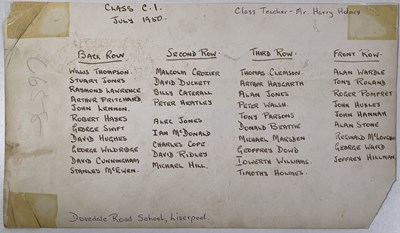 CLASS C.1.
JULY 1950.
Class Teacher - Mr. Harry Holmes
BACK ROW.
WILLS THOMPSON.
STUART JONES
RAYMOND LAWRENCE
ARTHUR PRITCHARD
JOHN LENNON.
ROBERT HADES
GEORGE SWIFT
DAVID HUGHES
GEORGE WILDRIDGE
DAVID CUNNINGHAM
STANLEY McEWEN.
SECOND ROW.
MALCOLM CROZIER
DAVID DUCKETT
BILLY CATERALL
PETER HEATLEY
ALEC JONES
IAN McDONALD
CHARLES COPE
DAVID RIDLEY
MICHAEL HILL.
THIRD ROW.
THOMAS GLEASON.
ARTHUR HAGGARTH
ALAN JONES
PETER WALSH.
TONY PARSONS
DONALD BEATTIE
MICHAEL MARSDEN
GEOFFREY DOWD
IOWERTH WILLIAMS.
TIMOTHY HOLMES.
FRONT ROW.
ALAN WARDLE
TONY ROLAND
ROGER POMFRET
JOHN HUXLEY
JOHN HANNAH
ALAN STONE
REGINALD
GEORGE WARD
JEFFREY HILLMAN
Dovedale Road School, Liverpool.